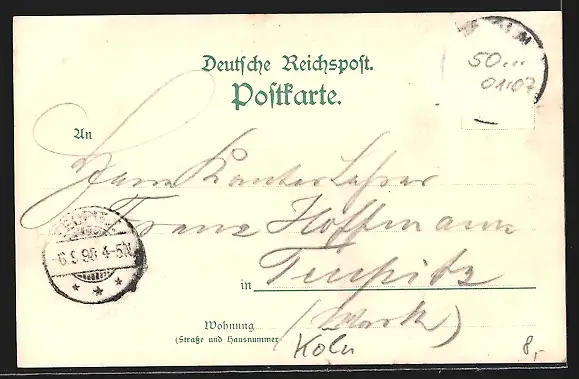 Deutsche Reichspost.
Postkarte.
50...
01107
An
Herrn Kantor Lehrer
Franz Hoffmann
TEUPITZ
6.5.98 4-5N
in Teupitz
(Mark)
Wohnung
(Straße und Hausnummer)
Köln
8,-